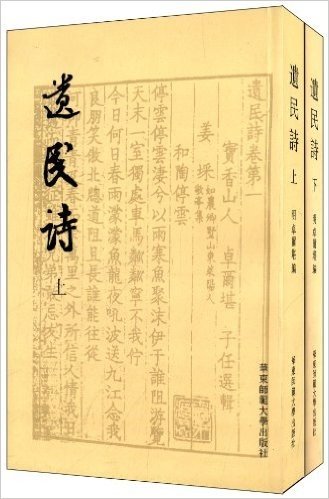 遺民詩
上
遺民詩卷第一
寶香山人 卓爾堪 子任選輯
姜埰
敬亭集
和陶停雲
停雲停雲淒今以寒魚聚沫伊于誰阻游覽
天末一室獨處車馬粼粼寧不我佇
今日何日春雨濛濛魚龍夜吼波送九江念我
良朋笑傲北牕道阻且長誰能往從
萬里之外所信人情我日
華東師範大學出版社
遺民詩 上 明卓爾堪編 華東師範大學出版社
遺民詩 下 明卓爾堪編 華東師範大學出版社